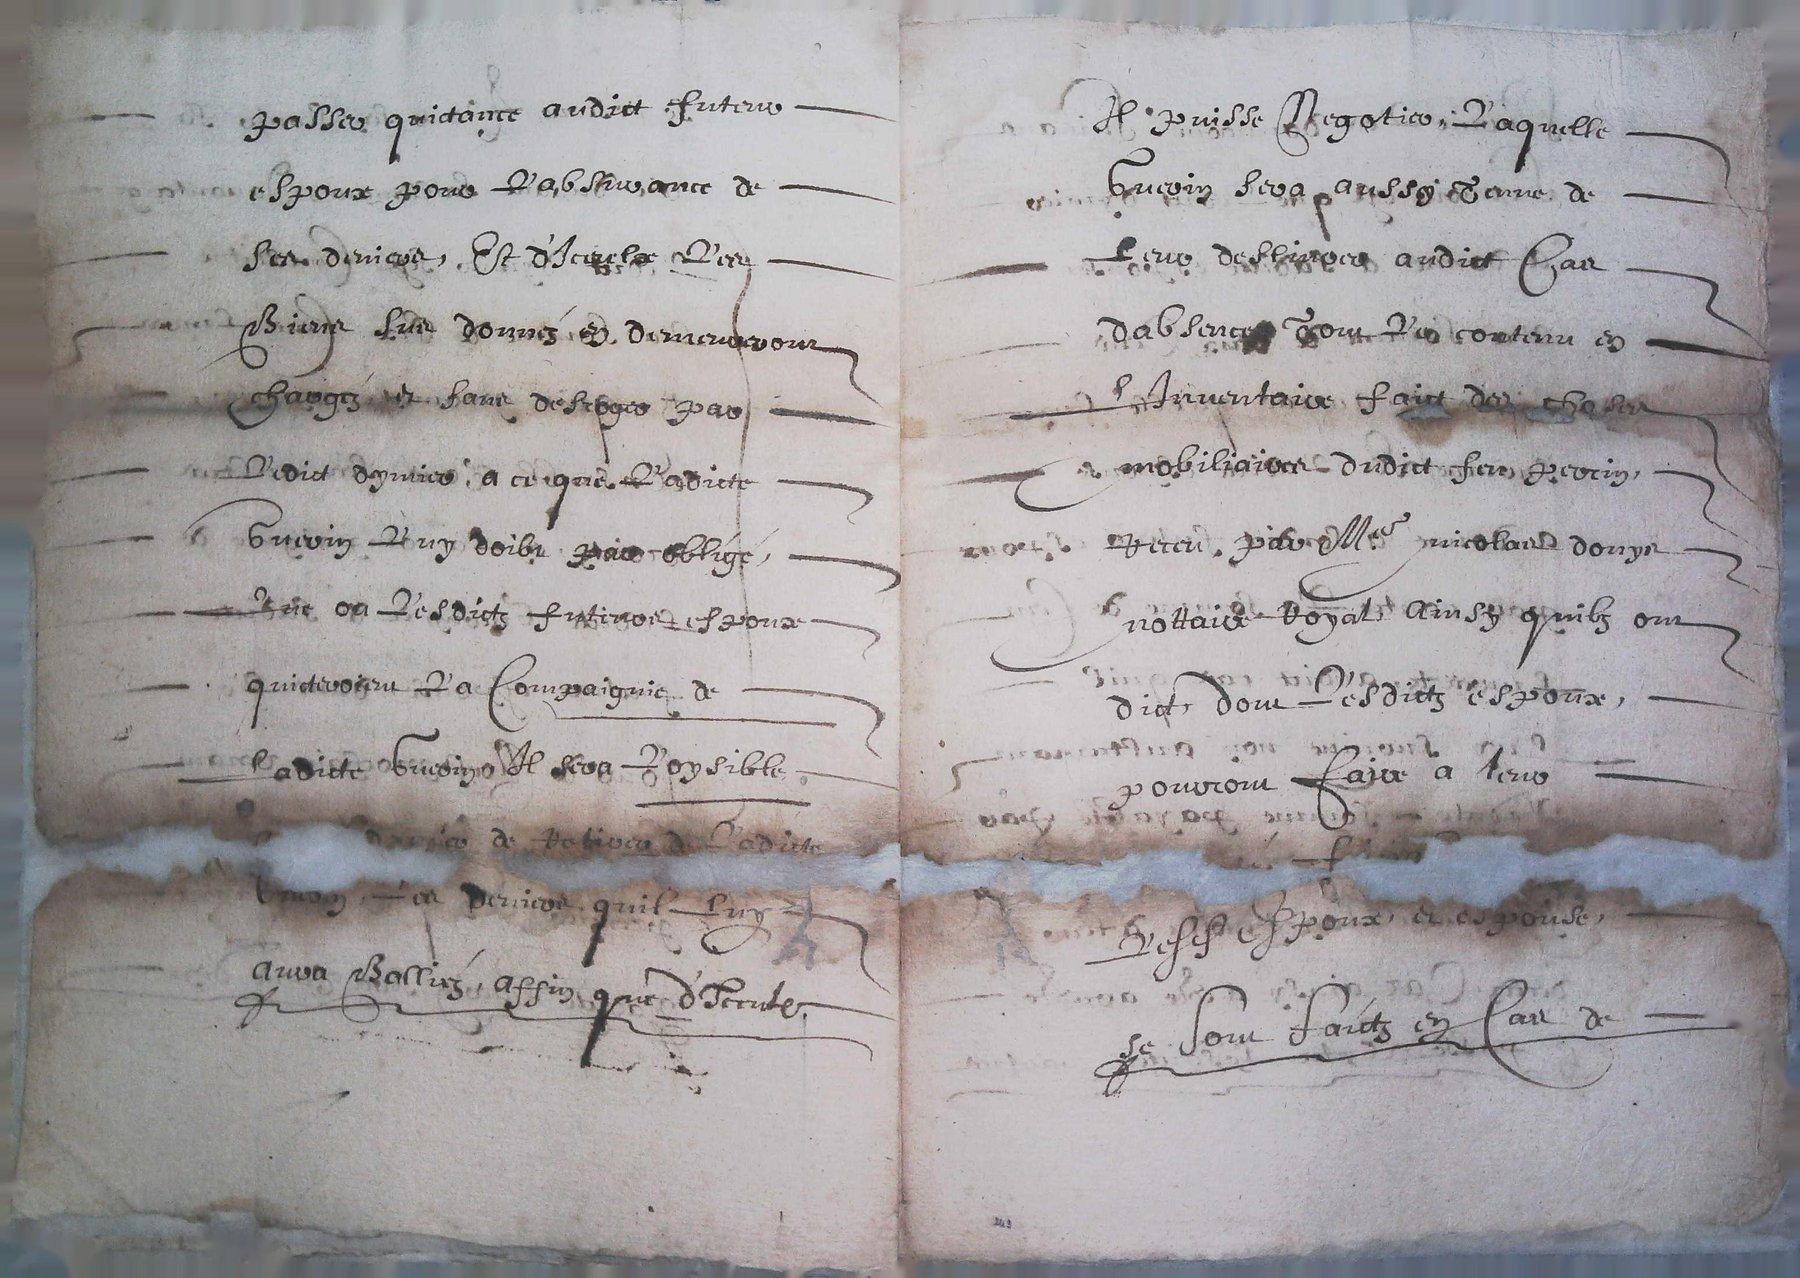 passer quictance audict futeur
espoux pour l'assurance de
ses deniers, Et d'Iceulx Les
Biens sus donnez en demeureront
chargez et sans deschoger par
Ledict dymier a ce que Ladicte
Guerin Luy doibt par obligé,
que ou Lesdictz futeurs espoux
quicteroient La Compaignie de
Ladicte Guerin Il sera Loysible
de Retirer de Ladicte
Guerin, Les deniers quil Luy
aura Baillez, affin que d'Iceulx
Il puisse Negotier, Laquelle
Guerin sera aussy Tenue de
Leur deslivrer audict Cas
dabsence Tout Le contenu en
l'Inventaire faict des choses
mobiliaires dudict feu perrin,
Receu par Me nicolas donys
nottaire Royal Ainsy quilz ont
dict, Dont Lesdictz espoux,
pourront faire a leur
Lesd espoux, et espouse,
se sont faictz en Cas de